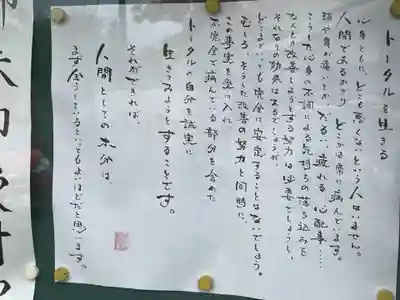 トータルを生きる
心身ともに、どこも悪くないという人はいません。
人間であるかぎり どこかは常に病んでいます。
頭や身が痛いとか、だるい、疲れる、心配事……
こうした心身の不調による気持ちの落ち込みを
なんとか改善しようとする努力は必要でしょうし、
それなりの効果はあるでしょうが、
どこまでいっても完全に安定することはないでしょう。
むしろ、そうした改善の努力と同時に、
この事実を受け入れ、
不完全で病んでいる部分を含めた
トータルの自分を誠実に
生きてみようとすることです。
それができれば、
人間としての本分は、
まず全うしているといってもよいほどだと思います。